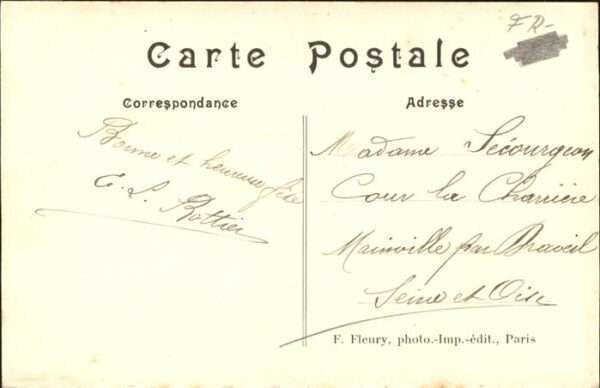 FR-
Carte Postale
Correspondance
Adresse
Bonne et heureuse fête
E. L. Rottier
Madame Sécourgeon
Cour la Charrière
Mainville par Draveil
Seine et Oise
F. Fleury, photo.-Imp.-édit., Paris